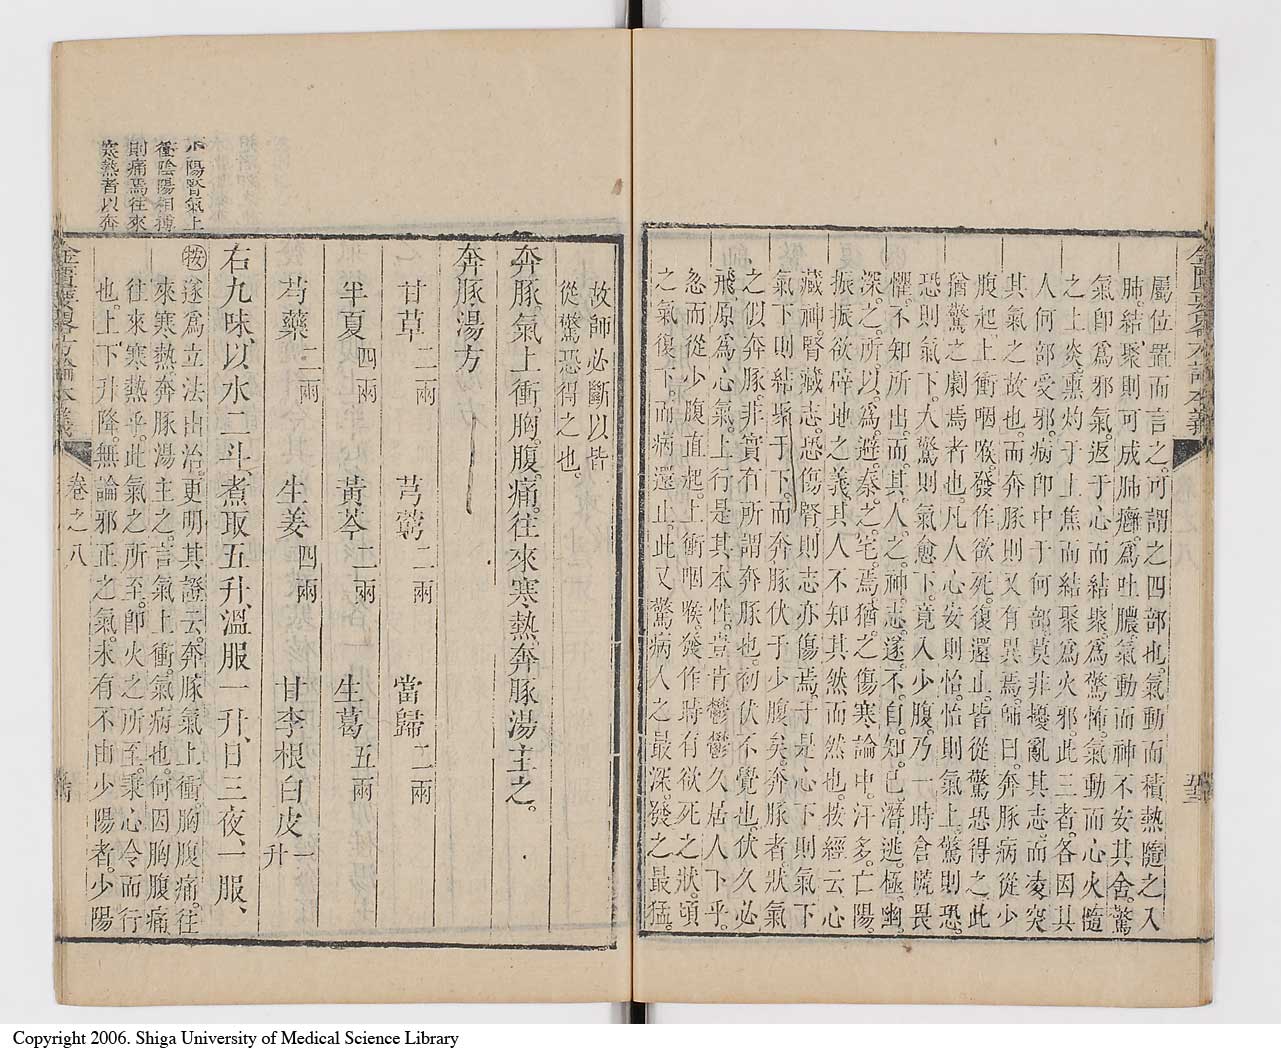 屬位置而言之。可謂之四部也。氣動而積熱隨之入
肺。結聚則可成肺癰。爲吐膿氣動而神不安其舍。驚
氣卽爲邪氣。返于心而結聚爲驚怖。氣動而心火隨
之上炎。熏灼于上焦而結聚爲火邪。此三者。各因其
人何部受邪。病卽中于何部莫非擾亂其志。而凌突
其氣之故也。而奔豚則又有異焉。師曰。奔豚病從少
腹起。上衝咽喉。發作欲死。復還止。皆從驚恐得之。此
猶驚之劇焉者也。凡人心安則怡。怡則氣上。驚則恐。
恐則氣下。大驚則氣愈下。竟入少腹。乃一時倉慌畏
懼。不知所出。而其人之神志。遂不自知。已潛逃。極幽
深之所。以爲避秦之宅。焉猶之傷寒論中。汗多。亡陽。
振振欲辟地之義。其人不知其然而然也。按經云心
藏神。腎藏志。恐傷腎。則志亦傷焉。于是心下則氣下
氣下則結聚于下。而奔豚伏于少腹矣。奔豚者。狀氣
之似奔豚。非實有所謂奔豚也。初伏不覺也。伏久必
飛。原爲心氣。上行是其本性。豈肯鬱鬱久居人下乎。
忽而從少腹直起。上衝咽喉。發作時有欲死之狀。頃
之氣復下。而病還止。此又驚病人之最深。發之最猛。
金匱要畧方論本義
故師必斷以皆
從驚恐得之也。
奔豚。氣上衝。胸。腹。痛。往來寒熱。奔豚湯主之。
奔豚湯方
甘草 二兩 芎藭 二兩 當歸 二兩
半夏 四兩 黃芩 二兩 生葛 五兩
芍藥 二兩 生姜 四兩 甘李根白皮 一升
右九味、以水二斗、煮取五升、溫服一升、日三夜、一服、
按遂爲立法出治。更明其證云。奔豚氣上衝。胸腹痛。往
來寒熱奔豚湯主之。言氣上衝。氣病也。何因胸腹痛
往來寒熱乎。此氣之所至。卽火之所至。秉心令而行
也。上下升降。無論邪正之氣。未有不由少陽者。少陽
陽腎氣上
衝陰陽相搏
則痛焉往來
寒熱者以奔
金匱要畧方論本義 卷之八
Copyright 2006. Shiga University of Medical Science Library